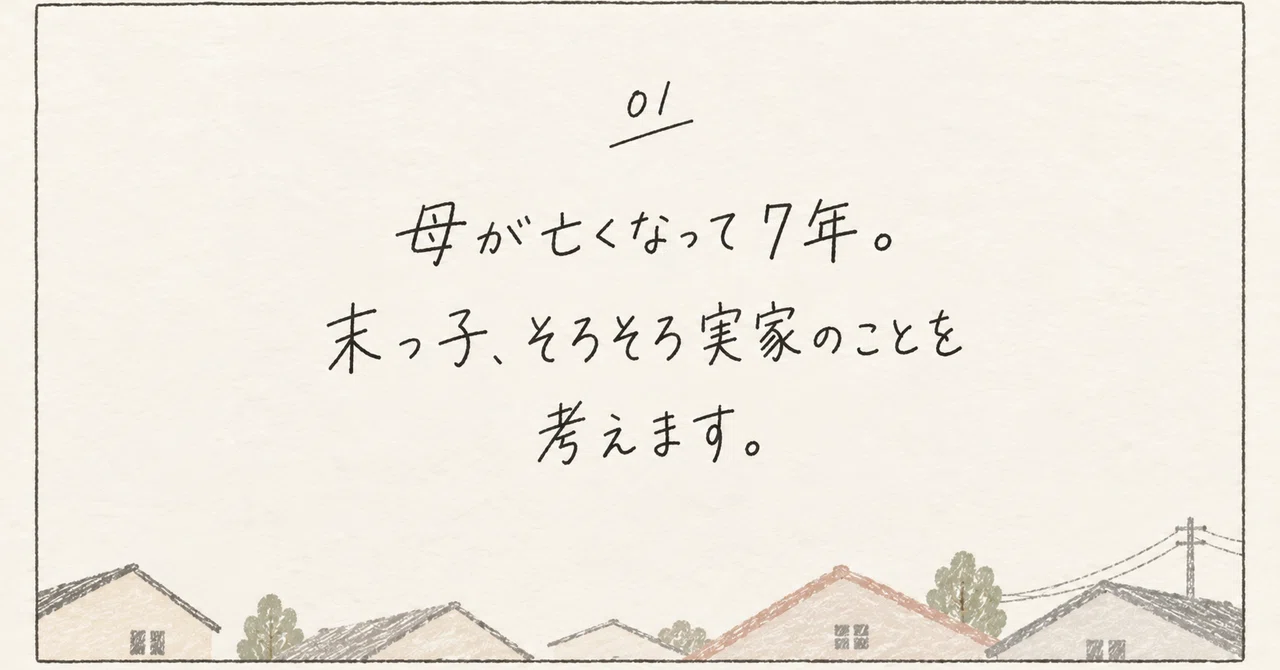 01
母が亡くなって7年。
末っ子、そろそろ実家のことを
考えます。